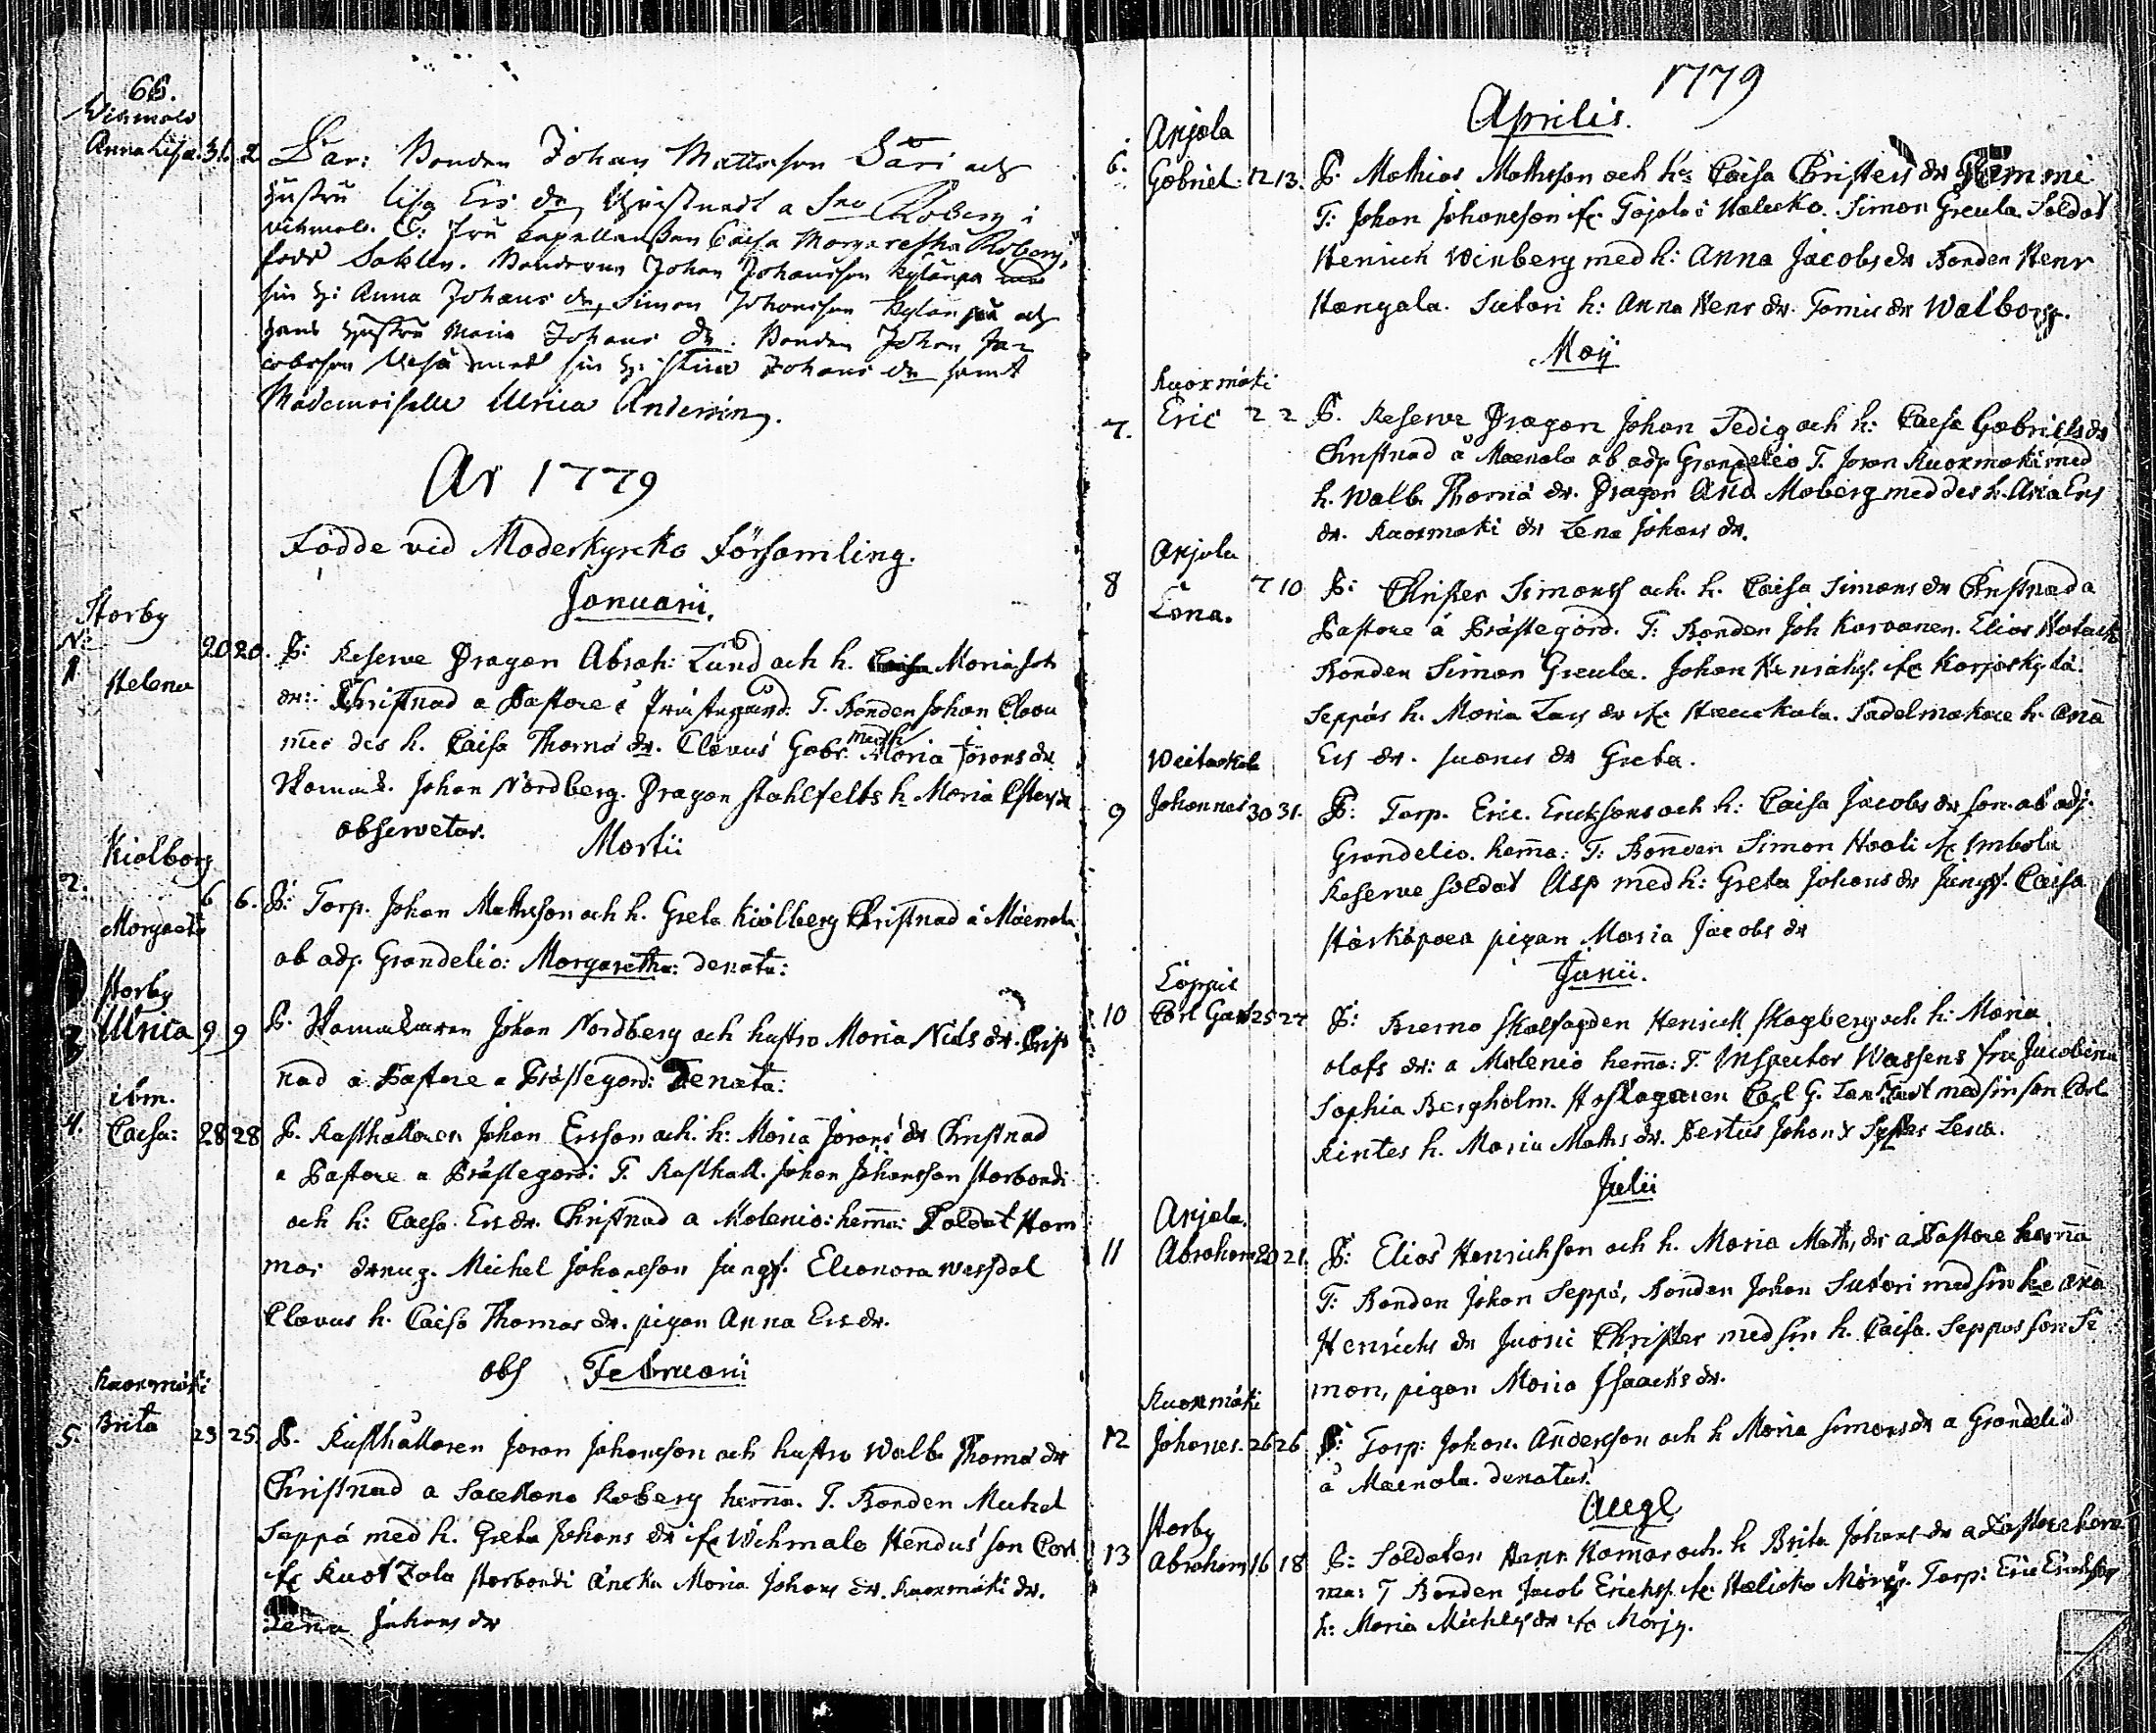 66.
Wichmalo
Anna Lisa. 31. 2 Par: Bonden Johan Mattsson Säri och
hustru Lisa Ers dr Christnadt a Sac Roberg i
vichmalo. T: fru kapellanskan Caisa Margaretha Roberg,
Bonderne Johan Johansson Kylänpä
sin h: Anna Johans dr, Simon Johansson Kylänpä och
hans hustru Maria Johans dr. Bonden Johan Ja=
cobsson med sin h: Stina Johans dr samt
Mademoiselle Ulrica
Ar 1779
Födde vid Moderkyrko Församling.
Januarii.
Storby
No 1 Helena 20 20. P: Reserve Dragon Abrah: Lund och h. Maria Joh
dr: Christnad a Pastore i Prästegård. T. Bonden Johan Clavu
med des h. Caisa Thomæ dr. Clavus Gabr. med h Maria Jörans dr
Johan Nordberg. Dragon Stahlfelts h. Maria
observetur. Martii
Kiölberg
2. Margareta 6 6. P: Torp. Johan Mathsson och h. Greta Kiölberg Christnad å Mäenala
ab adj. Grondelio: Margaretha: denata:
Storby
3 Ulrica 9 9 P. Johan Nordberg och hustro Maria Nils dr. Crist
nad a Pastore a Prästegord: Denata:
ibm.
4. Caesa: 28 28 P. Rusthållaren Johan Ersson och. h: Maria Jörans dr Christnad
a Pastore a Prästegord: T. Rusthåll. Johan Johansson Storbondi
och h: Caesa Ers dr. Christnad a Molenio: hemma: Soldat Ham
mar dreng. Michel Johansson Jungf. Eleonora Wessdal
Clavus h. Caisa Thomas dr. pigan Anna Ers dr.
obs Februarii
Kuoxmäki
5. Brita 23 25. P. Rusthållaren Joran Johansson och hustro Walb. Thomæ dr
Christnad a Sacellano Roberg hemma. T. Bonden Michel
Seppä med h. Greta Johans dr fr Wichmalo Hendus son Carl
fr Kuotzola Storbondi Änckia Maria Johans dr. Kuoxmäki dr.
Lena Johans dr
1779
Aprilis.
Anjala
6. Gabriel 12 13. P. Mathias Mathsson och h: Caisa Christers dr
T: Johan Johansson fr Tojola i Walcko. Simon Greula. Soldat
Henrich Winberg med h: Anna Jacobs dr Bonden Henr
Hangala. Sutari h: Anna Henr dr. Tomis dr Walborg.
Maij
Kuoxmäki
7. Eric 2 2 P. Reserve Dragon Johan Tedig och h: Caisa Gabriels dr
Christnad å Mäenala ab adj Grondelio T. Joran Kuoxmäki med
h. Walb. Thomæ dr. Dragon And. Moberg med des h. Ers
dr. Kuoxmäki dr Lena Johans dr.
Anjala
8 Lena. 7 10 P: Christer Simonss och. h. Caisa Simons dr Christnad a
Pastore å Prästegord. T: Bonden Joh Karvanen. Elias
Bonden Simon Greula. Johan Henrichss. fr Korjoskylä.
Seppäs h. Maria Lars dr fr Hauckala. Sadelmakare h. Anna
Ers dr. Juanis dr Greta.
9 Johannes 30 31. P: Torp. Eric. Ericksons och h: Caisa Jacobs dr son. ab adj.
Grondelio. hemma: T: Bonden Simon fr Imbola
Reserve soldat Asp med h: Greta Johans dr Jungf. Caisa
pigan Maria Jacobs dr
Junii.
Loppis
10 Carl Gust 25 27 P: Henrich Skogberg och h: Maria
olofs dr: a Molenio hemma: T. Inspector Wassens fru Jacobina
Sophia Bergholm. Carl G. med sin son Carl
Rintes h. Maria Maths dr. Pertus Johan Syster Lena.
Julii
Anjala.
11 Abraham 20 21. P: Elias Henrichson och h. Maria Math. dr a Pastore hemma
T: Bonden Johan Seppä, Bonden Johan Sutari med sin h: Anna
Henrichs dr Juoni Christer med sin h. Caisa. Seppus son Si
mon, pigan Maria Isaacks dr.
Kuoxmäki
12 Johanes. 26 26 P: Torp: Johan. Andersson och h Maria Simons dr a Grondelio
a Mäenala. denatus
Augl
Storby
13 Abraham 16 18 P: Soldaten Henr. Hammar och. h Brita Johans dr a Pastore hem
ma: T Bonden Jacob Erichs. fr Torp: Eric Ericksson
h: Maria Michels dr fr Mörjy.